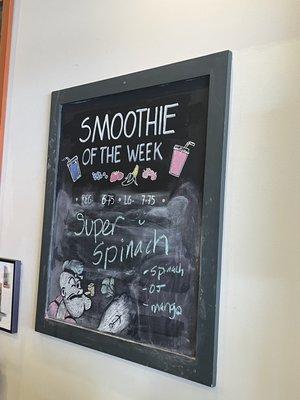 SMOOTHIE
OF THE WEEK
• REG 6.75 • LG 7.75 •
Super
Spinach
- spinach
- OJ
- mango